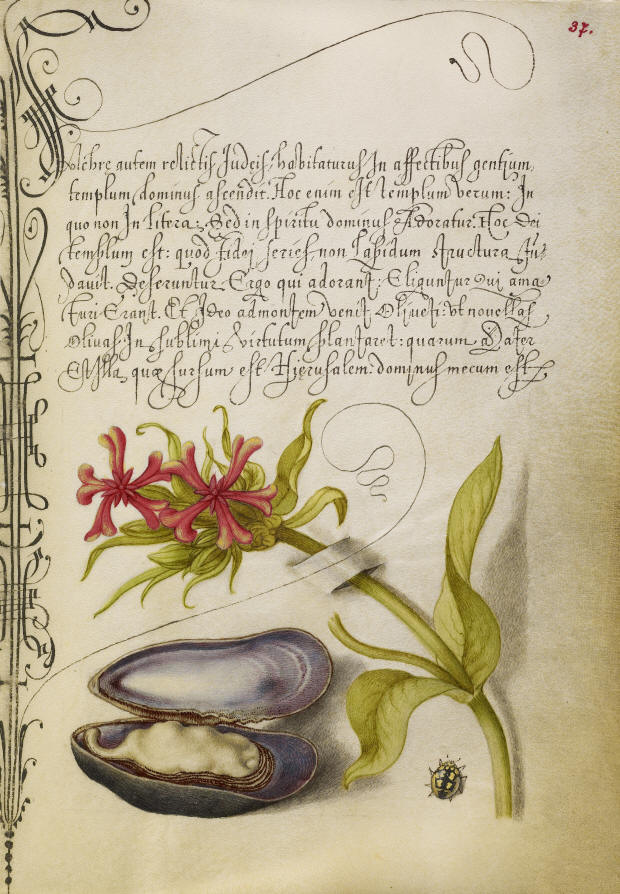 37.
Alebre autem relictis Judeis, habitaturus In affectibus gentium
templum, dominus ascendit. Hoc enim est templum verum: In
quo non In litera: Sed in spiritu dominus Adoratur. Hoc Dei
templum est: quod fidei series, non Lapidum structura fu-
davit. Deseruntur Ergo qui adorant: Eliguntur qui ama-
turi Erant. Et Ideo ad montem venit Oliveti: ut novellas
Olivas In sublimi Virtutum plantaret: quarum Mater
Est Illa, quæ sursum est Hierusalem. dominus mecum est